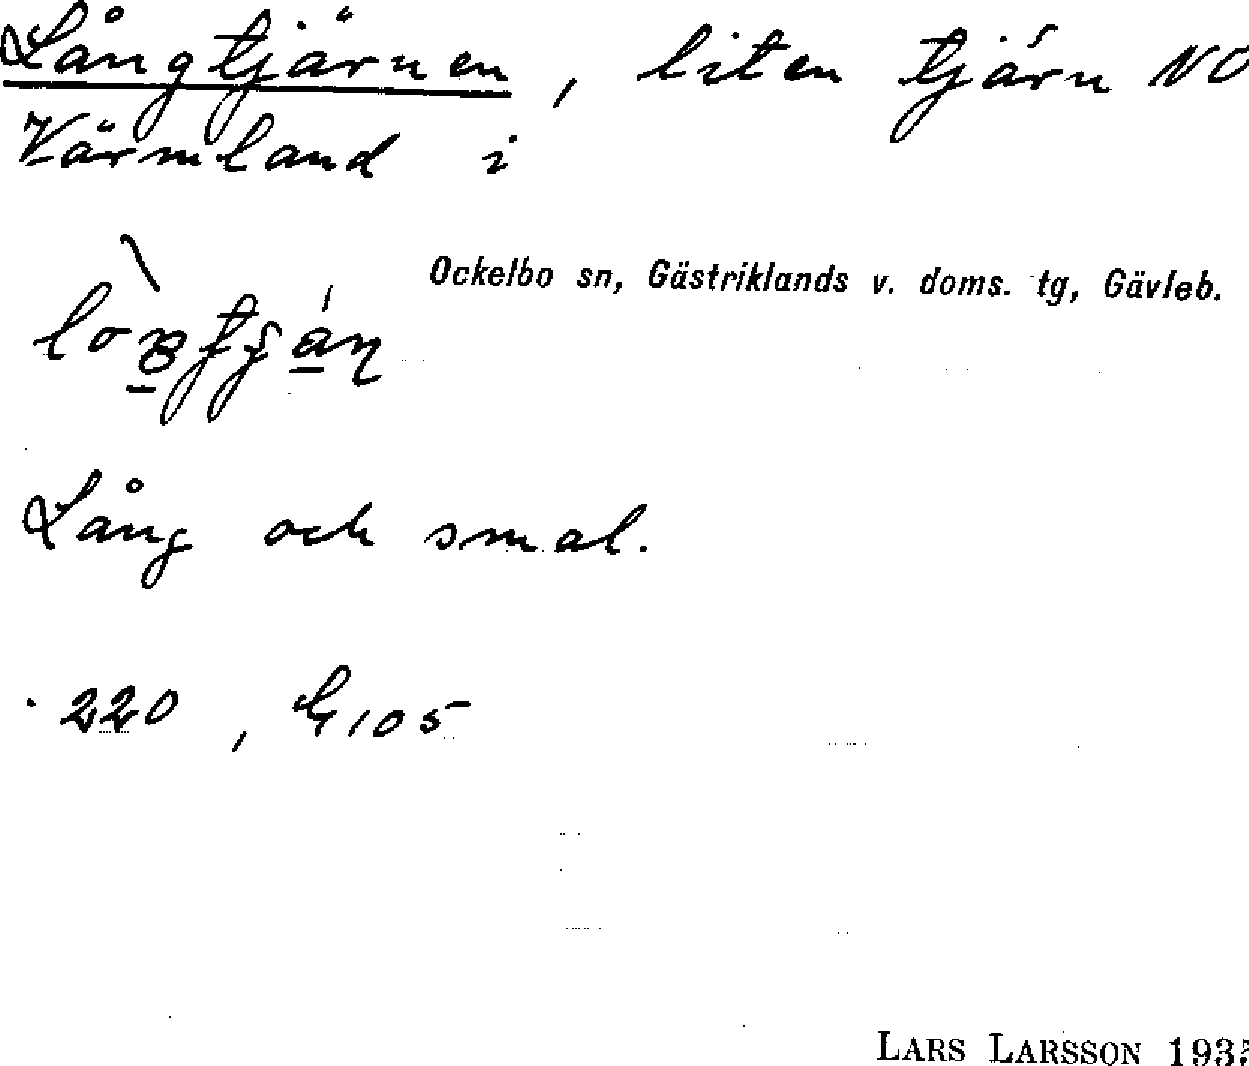 Långtjärnen, liten tjärn NO
Värmland i
Ockelbo sn, Gästriklands v. doms. tg, Gävleb.
Lång och smal.
220, G105
LARS LARSSON 193